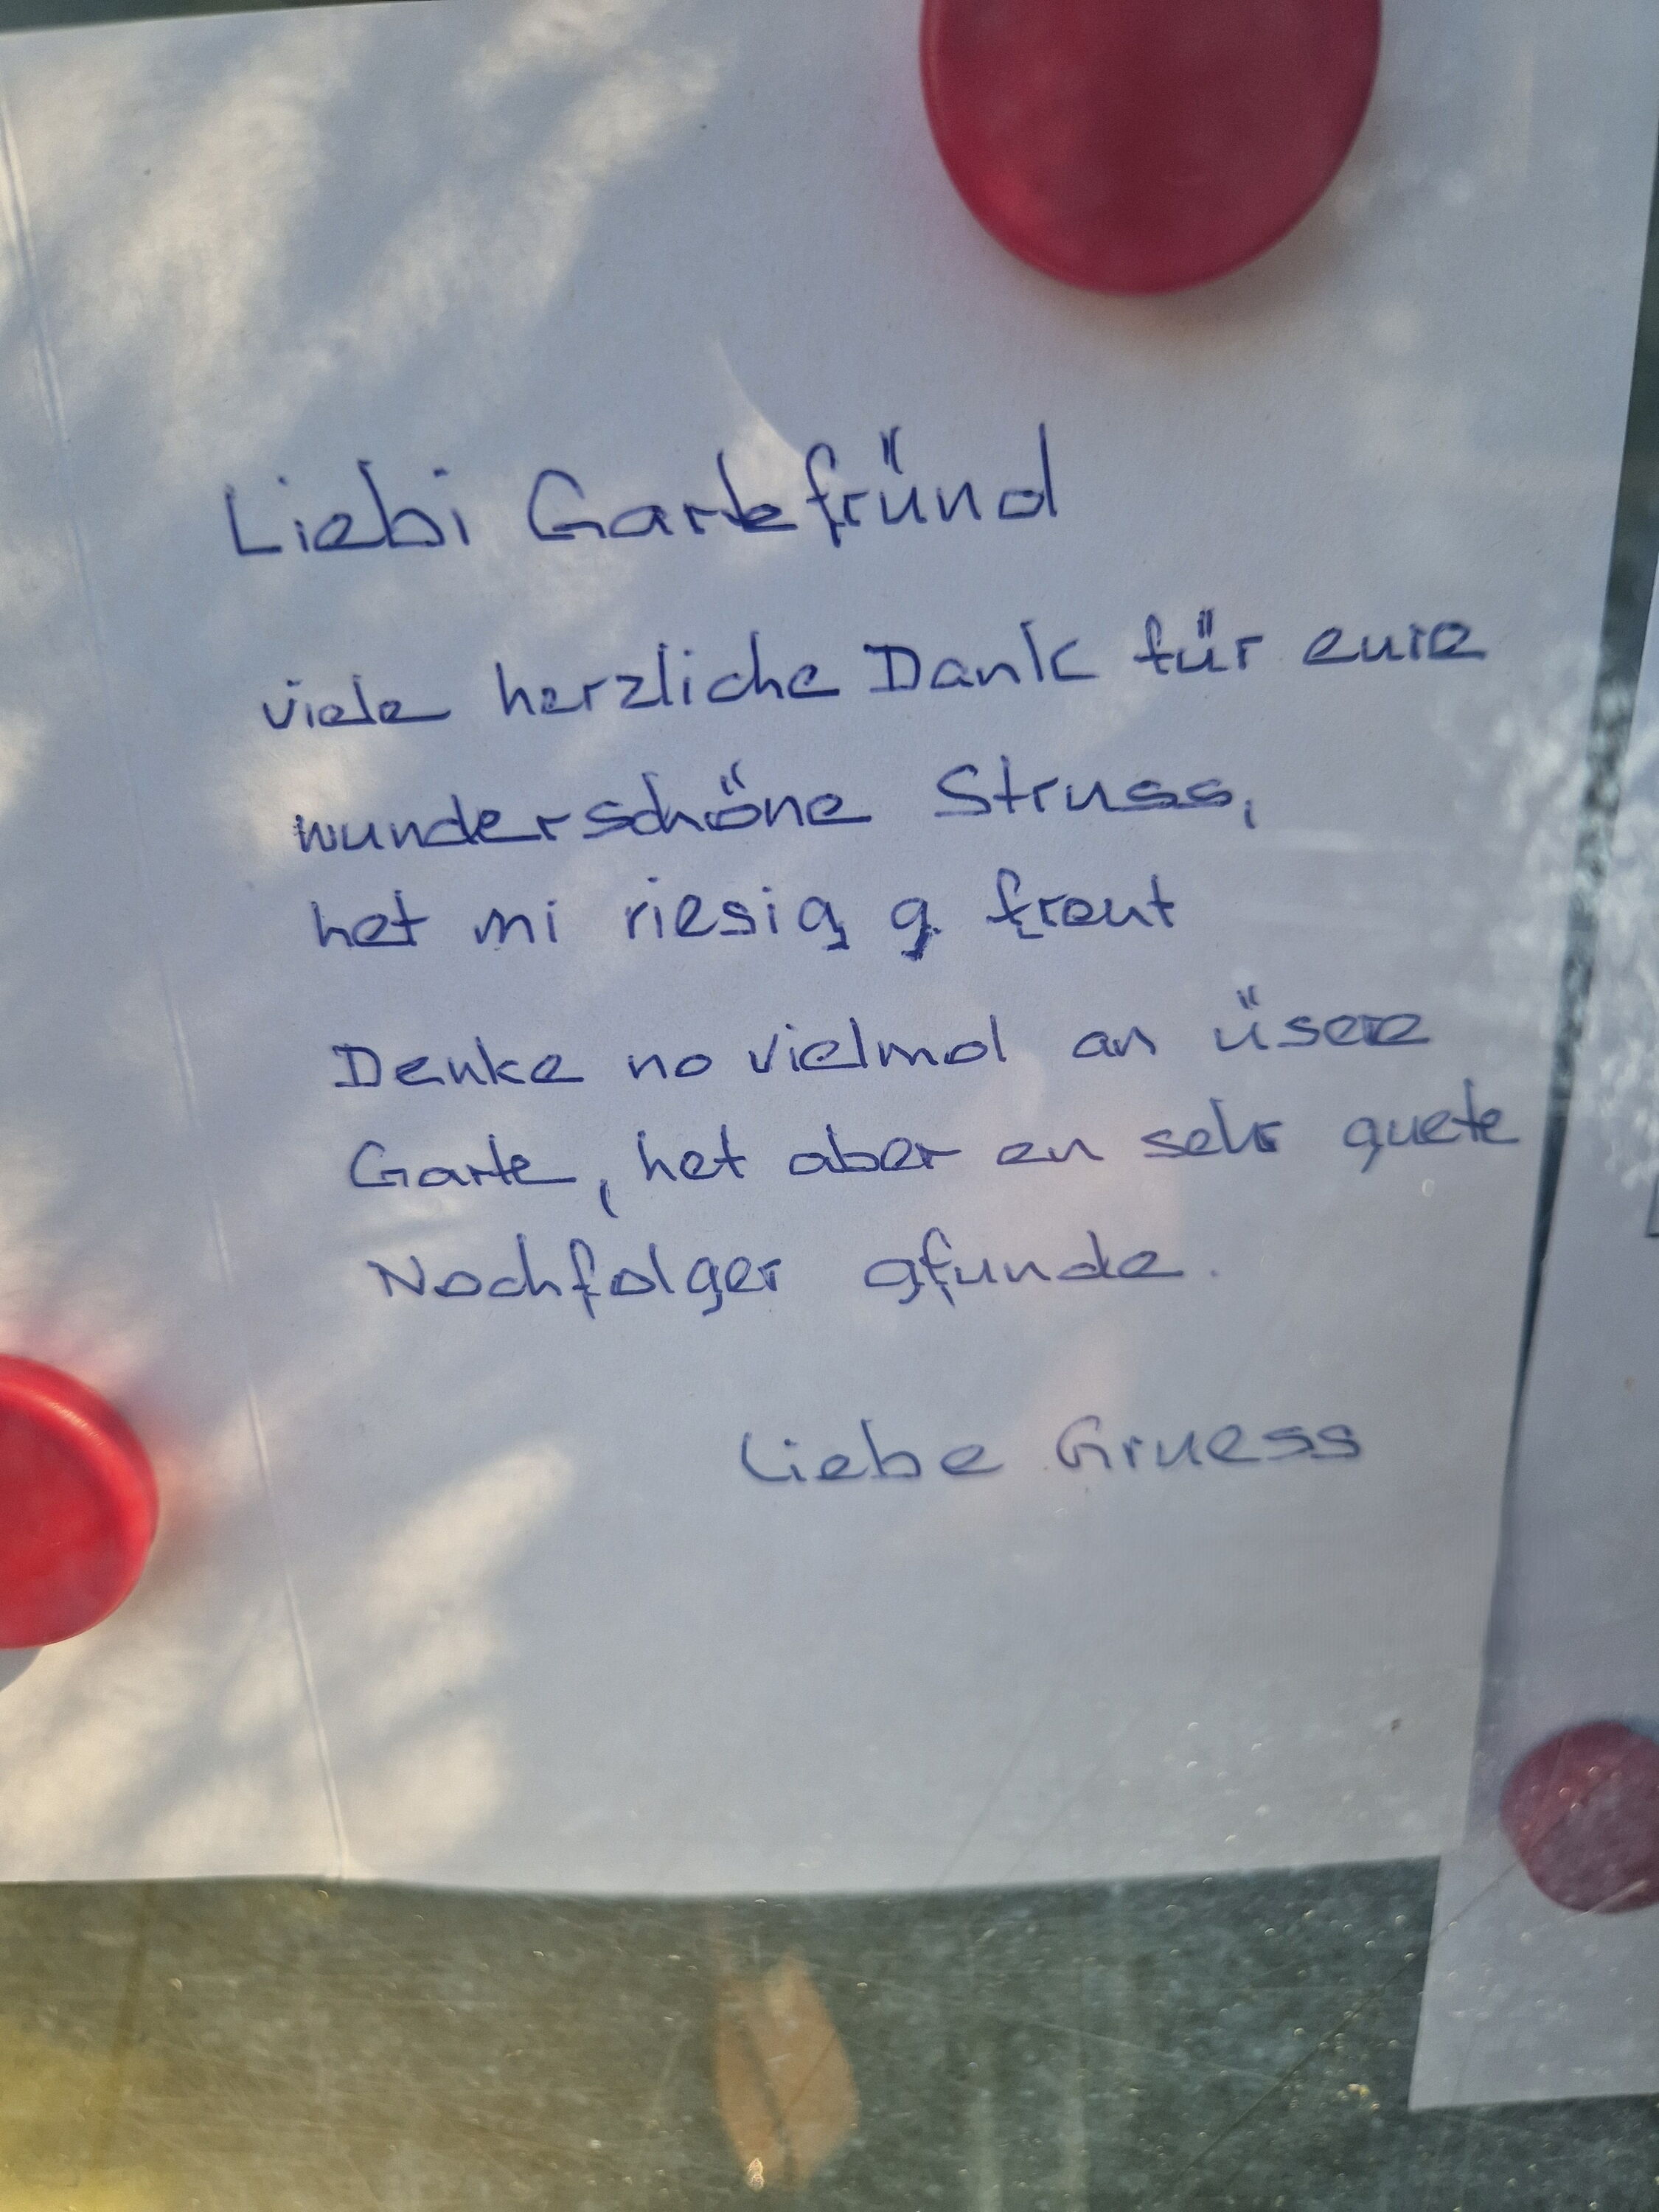 Liebi Gartefründ
viele herzliche Dank für eure
wunderschöne Struss,
het mi riesig g. freut
Denke no vielmol an üsere
Garte, het aber en sehr guete
Nochfolger gfunde.
Liebe Gruess